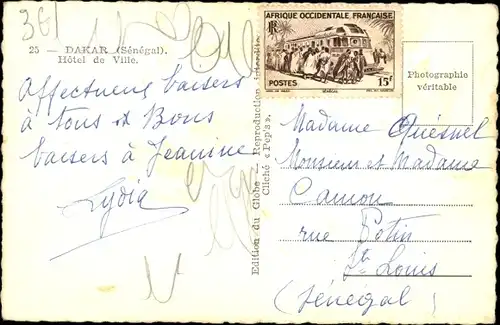 361
25 - DAKAR (Sénégal).
Hôtel de Ville.
Affectueux baisers
à tous et Bons
baisers à Jeanine
Lydia
Edition du Globe — Reproduction interdite
Cliché « Pep's »
AFRIQUE OCCIDENTALE FRANÇAISE
RF
POSTES
15F
SÉNÉGAL
Photographie
véritable
Madame Quesnel
Monsieur et Madame
Camou
rue Potin
St Louis
(Sénégal)